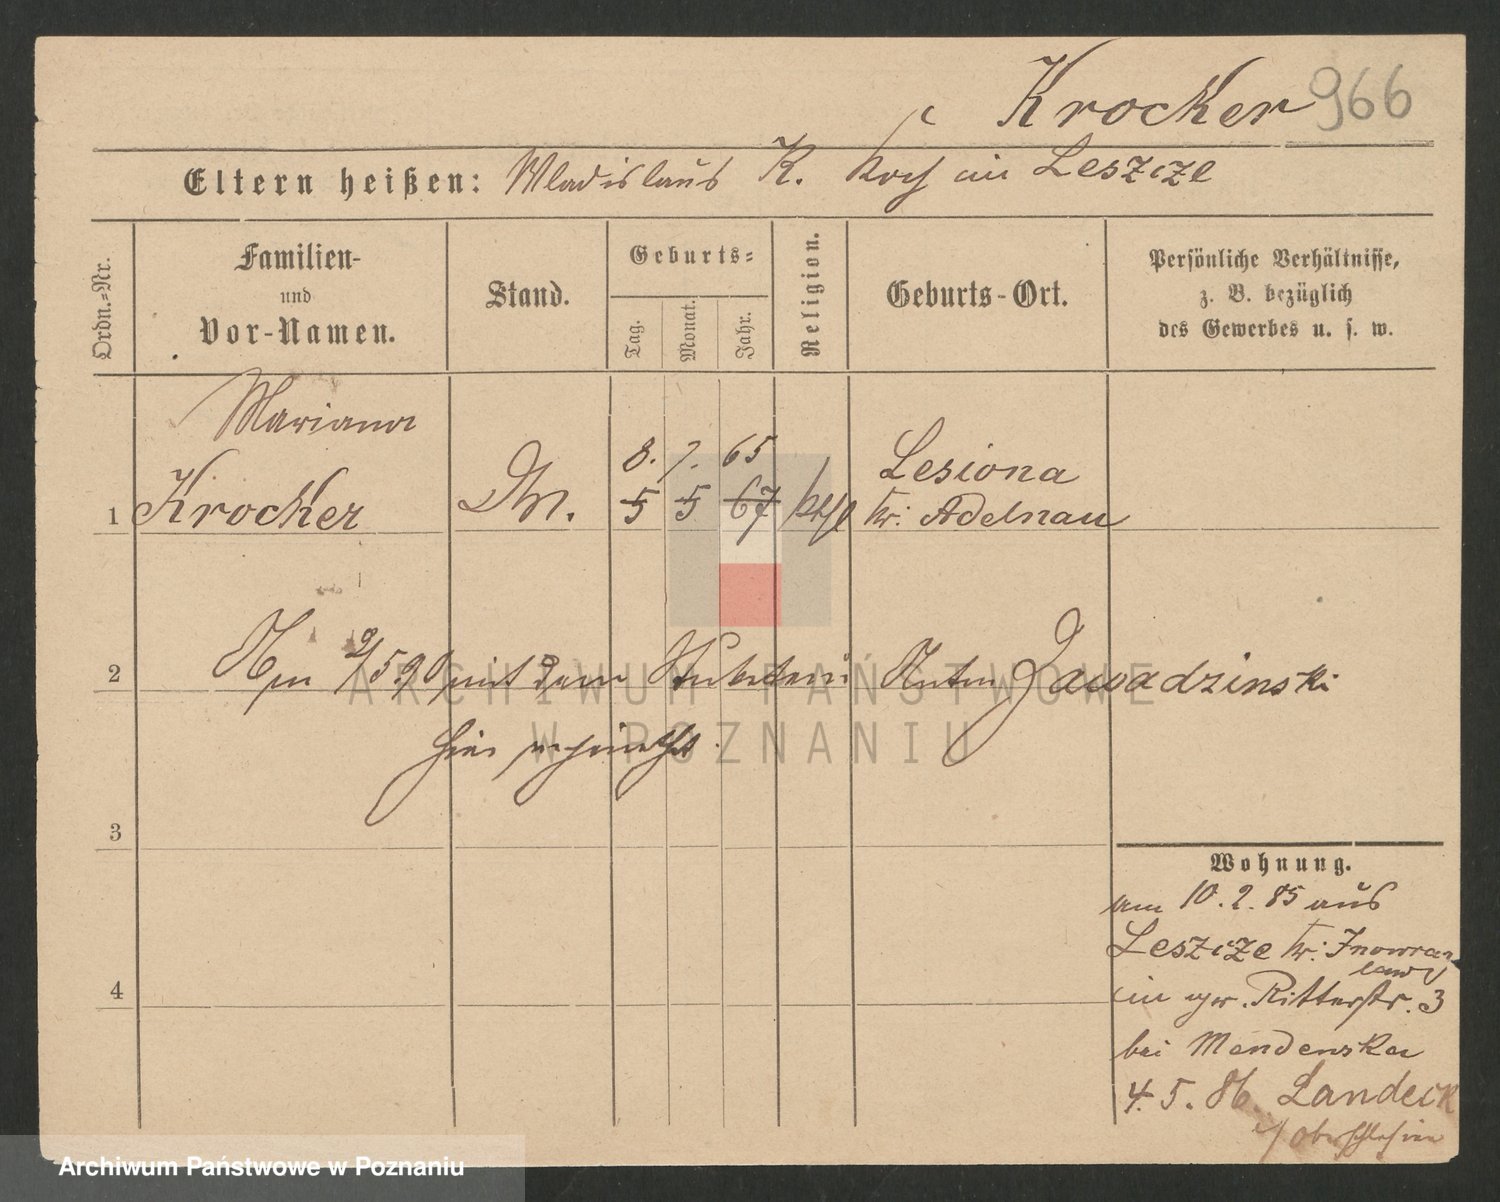 Krocker 966
Eltern heißen: Wladislaus K. Koch in Leszize
Ordn.-Nr.
Familien-
und
Vor-Namen.
Stand.
Geburts-
Tag.
Monat.
Jahr.
Religion.
Geburts-Ort.
Persönliche Verhältnisse,
z. B. bezüglich
des Gewerbes u. s. w.
Mariana
8. 7. 65
Lesiona
1 Krocker 5 5 67 kath Kr. Adelnau
2 9/5 90 mit dem Anton Zawadzinski
hier verheirathet.
3
4
Wohnung.
am 10.2.85 aus
Leszize Kr. Inowraz
law
in Ritterstr. 3
bei Mendenska
4.5.86. Landeck
Oberschlesien
ARCHIWUM PAŃSTWOWE
W POZNANIU
Archiwum Państwowe w Poznaniu